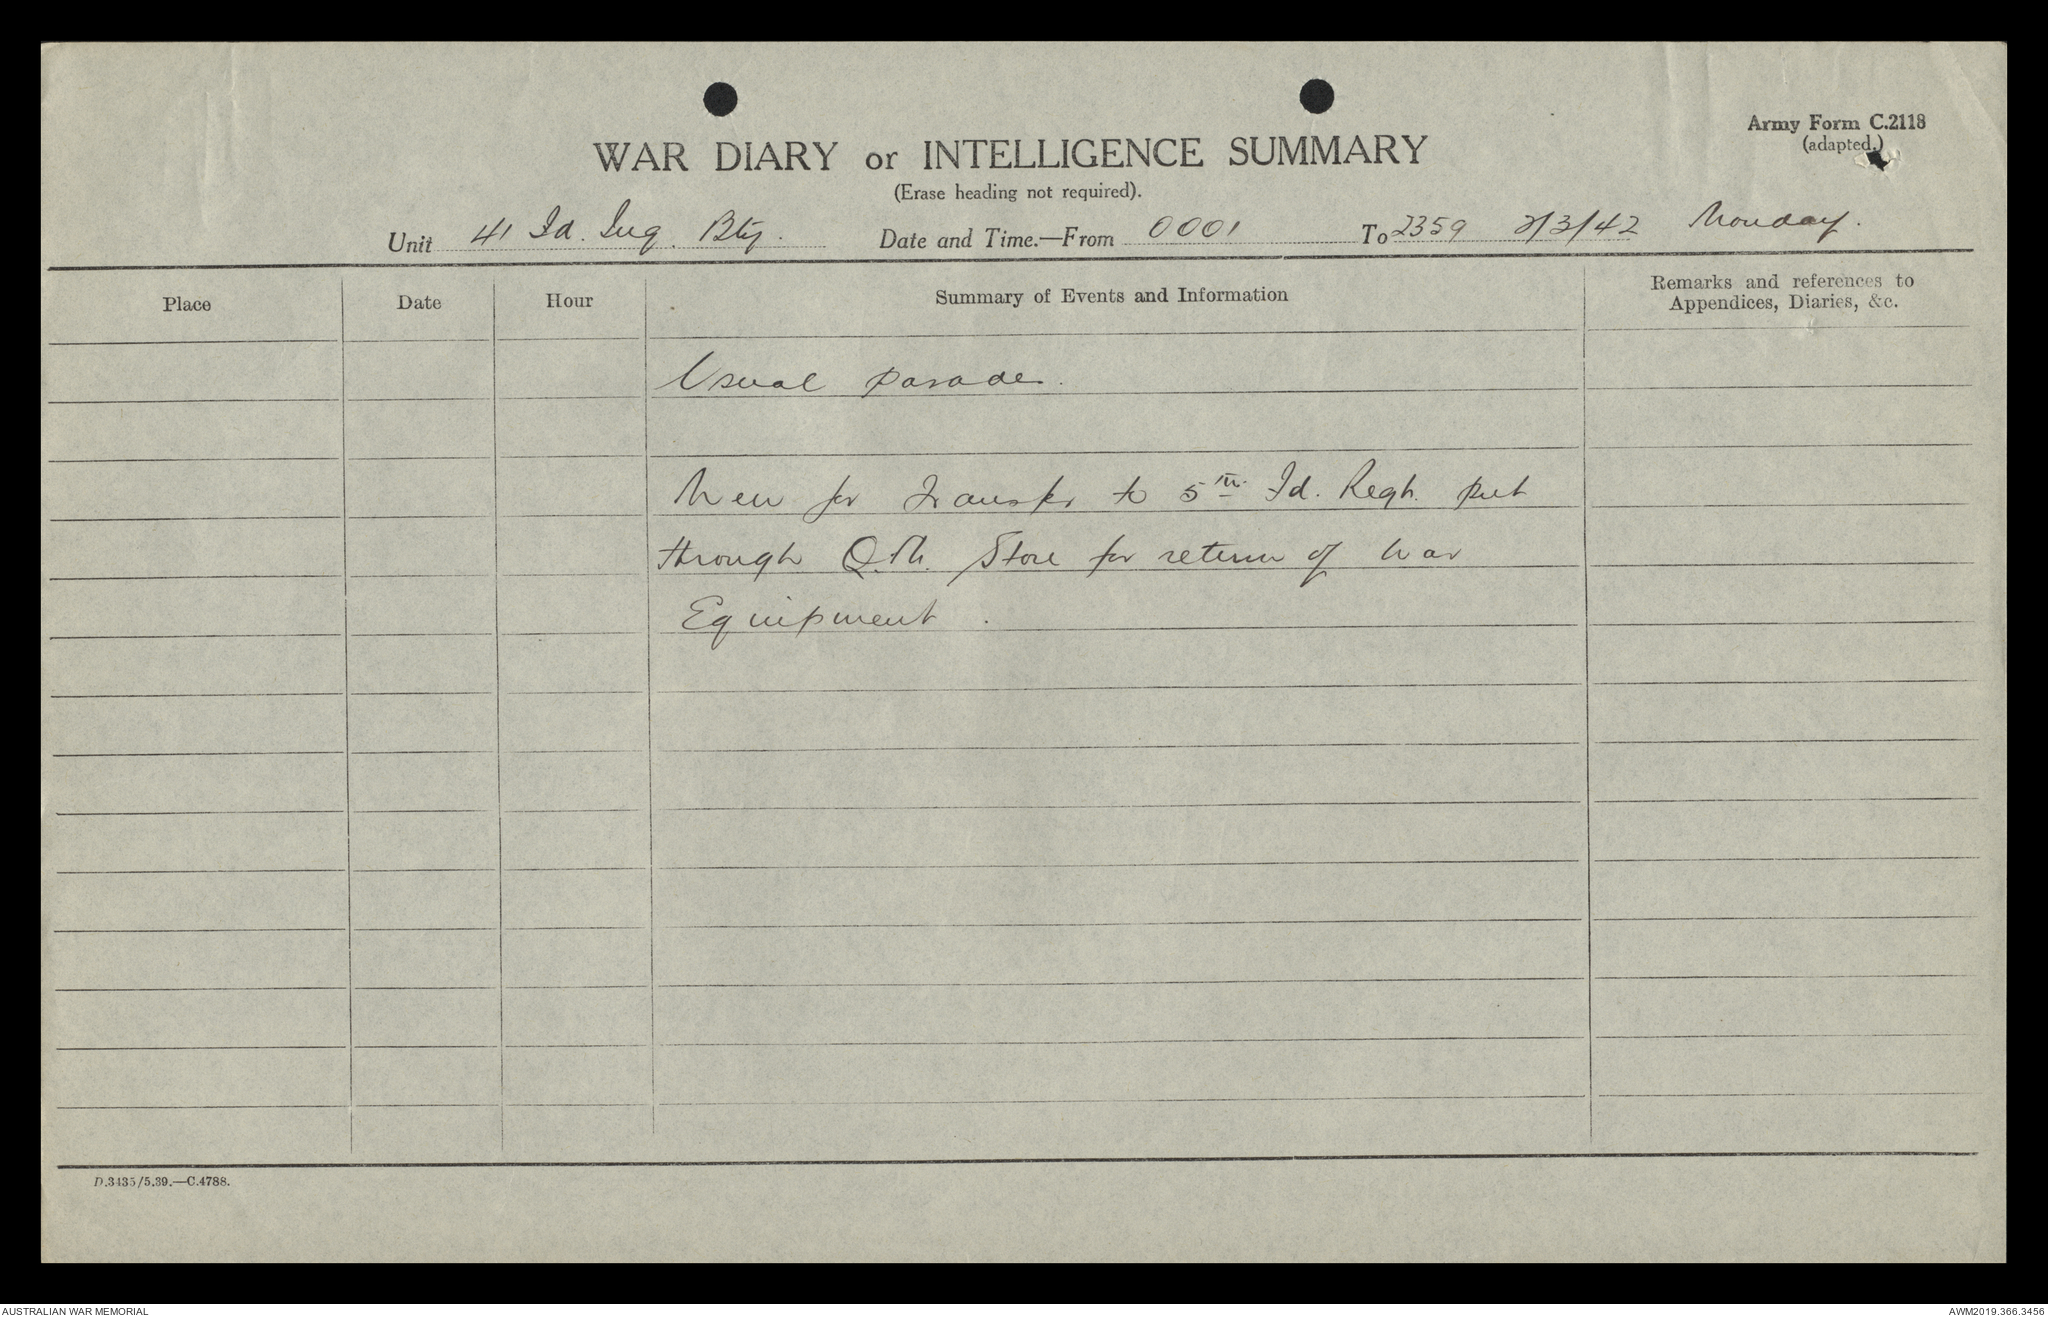 Army Form C.2118
(adapted.)
WAR DIARY or INTELLIGENCE SUMMARY
(Erase heading not required).
Unit 41 Fd. Trg. Bty. Date and Time.—From 0001 To 2359 2/3/42 Monday.
Place Date Hour Summary of Events and Information Remarks and references to
Appendices, Diaries, &c.
Usual parades.
Men for transfer to 5th Fd. Regt. put
through Q.M. Store for return of War
Equipment.
D.3435/5.39.—C.4788.
AUSTRALIAN WAR MEMORIAL AWM2019.366.3456